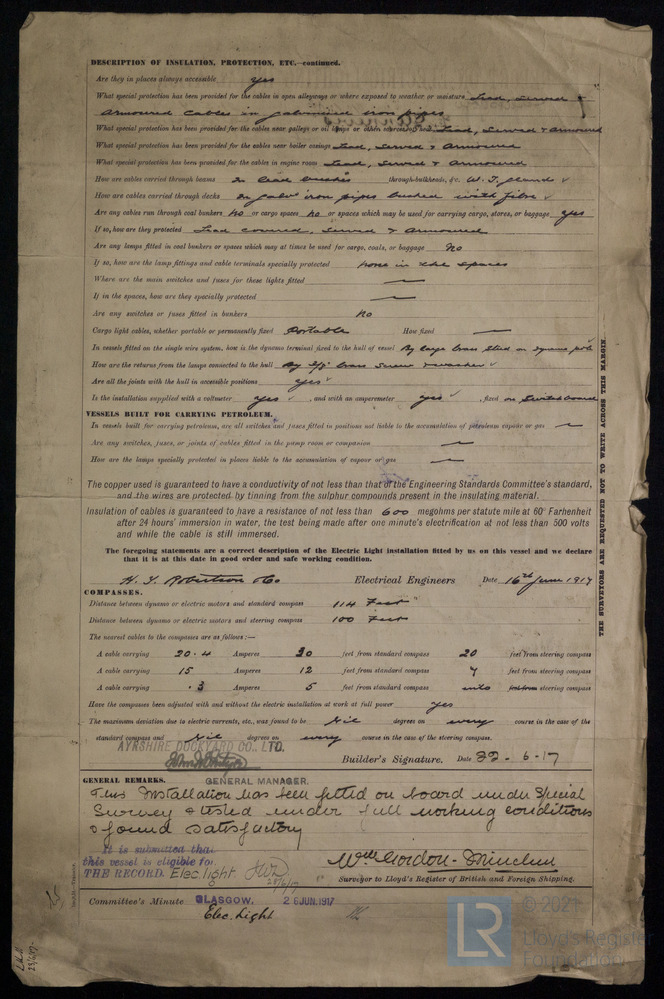 DESCRIPTION OF INSULATION, PROTECTION, ETC.—continued.
Are they in places always accessible yes
What special protection has been provided for the cables in open alleyways or where exposed to weather or moisture Lead, served &
armoured cables in galvanised iron pipes
What special protection has been provided for the cables near galleys or oil lamps or other sources of heat Lead, served & armoured
What special protection has been provided for the cables near boiler casings Lead, served & armoured
What special protection has been provided for the cables in engine room Lead, served & armoured
How are cables carried through beams In lead bushes through bulkheads, &c. W.T. glands
How are cables carried through decks In galvd iron pipes bushed with fibre
Are any cables run through coal bunkers no or cargo spaces no or spaces which may be used for carrying cargo, stores, or baggage yes
If so, how are they protected Lead covered, served & armoured
Are any lamps fitted in coal bunkers or spaces which may at times be used for cargo, coals, or baggage No
If so, how are the lamp fittings and cable terminals specially protected none in the spaces
Where are the main switches and fuses for these lights fitted —
If in the spaces, how are they specially protected —
Are any switches or fuses fitted in bunkers no
Cargo light cables, whether portable or permanently fixed Portable How fixed —
In vessels fitted on the single wire system, how is the dynamo terminal fixed to the hull of vessel By large brass stud on dynamo pole
How are the returns from the lamps connected to the hull By 3/8" brass screw & washer
Are all the joints with the hull in accessible positions yes
Is the installation supplied with a voltmeter yes, and with an amperemeter yes, fixed on Switchboard
VESSELS BUILT FOR CARRYING PETROLEUM.
In vessels built for carrying petroleum, are all switches and fuses fitted in positions not liable to the accumulation of petroleum vapour or gas —
Are any switches, fuses, or joints of cables fitted in the pump room or companion —
How are the lamps specially protected in places liable to the accumulation of vapour or gas —
The copper used is guaranteed to have a conductivity of not less than that of the Engineering Standards Committee's standard,
and the wires are protected by tinning from the sulphur compounds present in the insulating material.
Insulation of cables is guaranteed to have a resistance of not less than 600 megohms per statute mile at 60° Farhenheit
after 24 hours' immersion in water, the test being made after one minute's electrification at not less than 500 volts
and while the cable is still immersed.
The foregoing statements are a correct description of the Electric Light installation fitted by us on this vessel and we declare
that it is at this date in good order and safe working condition.
H. J. Robertson & Co Electrical Engineers Date 16th June 1917
COMPASSES.
Distance between dynamo or electric motors and standard compass 114 Feet
Distance between dynamo or electric motors and steering compass 100 Feet
The nearest cables to the compasses are as follows:—
A cable carrying 20.4 Amperes 30 feet from standard compass 20 feet from steering compass
A cable carrying 15 Amperes 12 feet from standard compass 7 feet from steering compass
A cable carrying .3 Amperes 5 feet from standard compass into feet from steering compass
Have the compasses been adjusted with and without the electric installation at work at full power yes
The maximum deviation due to electric currents, etc., was found to be Nil degrees on every course in the case of the
standard compass and Nil degrees on every course in the case of the steering compass.
AYRSHIRE DOCKYARD CO., LTD.
Builder's Signature. Date 22-6-17
GENERAL MANAGER.
GENERAL REMARKS.
This Installation has been fitted on board under Special
Survey & tested under full working conditions
& found satisfactory
It is submitted that
this vessel is eligible for
THE RECORD. Elec. light
Wm Gordon-Minchin
Surveyor to Lloyd's Register of British and Foreign Shipping.
Committee's Minute GLASGOW. 26 JUN. 1917
Elec. Light
THE SURVEYORS ARE REQUESTED NOT TO WRITE ACROSS THIS MARGIN.
LR
© 2021
Lloyd's Register
Foundation